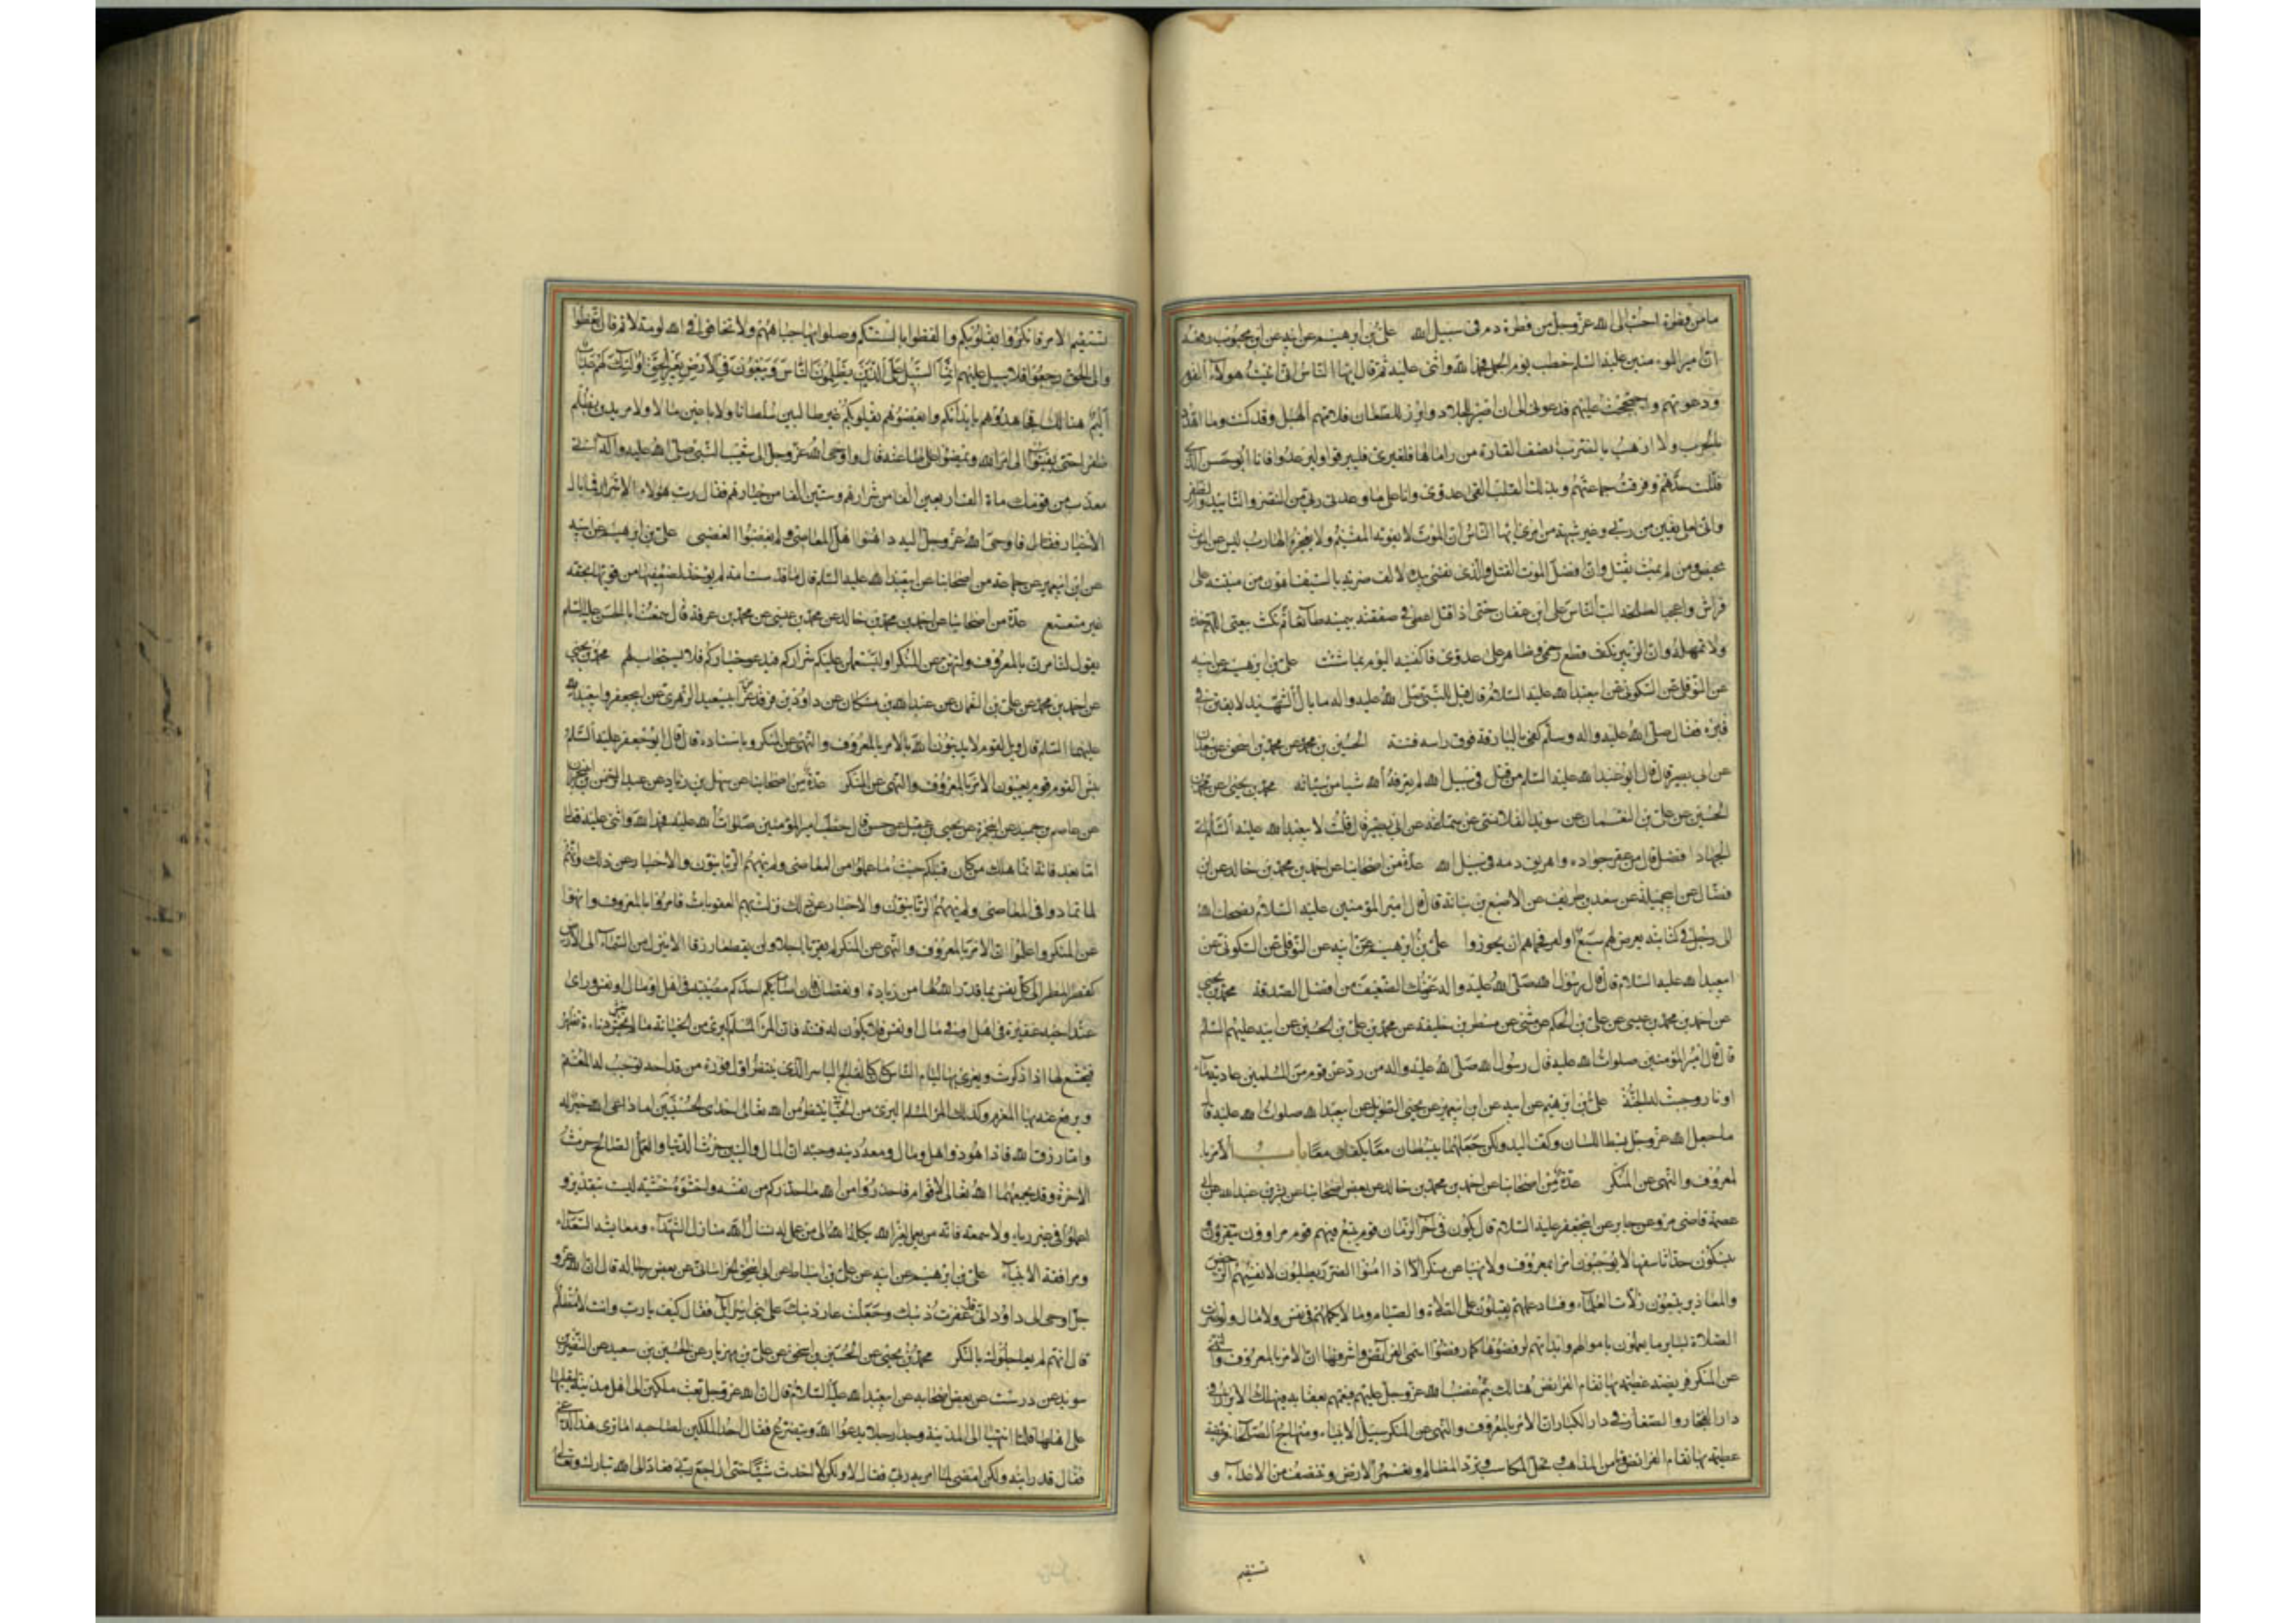 ما من قطرة احب الى الله عز وجل من قطرة دم فى سبيل الله على بن ابرهيم عن ابيه عن ابن محبوب رفعه
ان امير المومنين عليه السلم خطب يوم الجمل فحمد الله واثنى عليه ثم قال ايها الناس انى اتيت هولاء القوم
ودعوتهم واحتججت عليهم فدعونى الى ان اصبر للجلاد وابرز للطعان فلامهم الهبل وقد كنت وما اهدد
بالحرب ولا ارهب بالضرب انصف القارة من راماها فلغيرى فليبرقوا وليرعدوا فانا ابو الحسن الذى
فللت حدهم وفرقت جماعتهم وبذلك القلب القى عدوى وانا على ما وعدنى ربى من النصر والتاييد والظفر
وانى لعلى يقين من ربى وغير شبهة من امرى ايها الناس ان الموت لا يفوته المقيم ولا يعجزه الهارب ليس عن الموت
محيص ومن لم يمت يقتل وان افضل الموت القتل والذى نفسى بيده لالف ضربة بالسيف اهون من ميتة على
فراش واعجبا لطلحة الب الناس على ابن عفان حتى اذا قتل اعطانى صفقته بيمينه طائعا ثم نكث بيعتى اللهم خذه
ولا تمهله وان الزبير نكث قطع رحمى وظاهر على عدوى فاكفنيه اليوم بما شئت على بن ابرهيم عن ابيه
عن النوفلى عن السكونى عن ابيعبد الله عليه السلام قال قيل للنبى صلى الله عليه واله ما بال الشهيد لا يفتن فى
قبره فقال صلى الله عليه واله وسلم كفى بالبارقة فوق راسه فتنة الحسين بن محمد عن محمد بن اسحق عن سعدان
عن ابى بصير قال قال ابو عبد الله عليه السلام من قتل فى سبيل الله لم يعرفه الله شيا من سيئاته محمد بن يحيى عن محمد بن
الحسين عن على بن النعمان عن سويد القلانسى عن سماعة عن ابى بصير قال قلت لابيعبد الله عليه السلام اى
الجهاد افضل قال من عقر جواده واهريق دمه فى سبيل الله عدة من اصحابنا عن احمد بن محمد بن خالد عن ابن
فضال عن ابيجميلة عن سعد بن طريف عن الاصبغ بن نباتة قال قال امير المؤمنين عليه السلام يضحك الله
الى رجل فى كتيبة يعرض لهم سبع او لص فحماهم ان يجوزوا على بن ابرهيم عن ابيه عن النوفلى عن السكونى عن
ابيعبد الله عليه السلام قال قال رسول الله صلى الله عليه واله عونك الضعيف من افضل الصدقة محمد بن يحيى
عن احمد بن محمد بن عيسى عن على بن الحكم عن مثنى عن فطر بن خليفة عن محمد بن على بن الحسين عن ابيه عليهم السلم
قال قال امير المؤمنين صلوات الله عليه قال رسول الله صلى الله عليه واله من رد عن قوم من المسلمين عادية ماء
او نار وجبت له الجنة على بن ابرهيم عن ابيه عن ابن ابيعمير عن يحيى الطويل عن ابيعبد الله صلوات الله عليه قال
ما جعل الله عز وجل بسط اللسان وكف اليد ولكن جعلهما يبسطان معا ويكفان معا باب الامر با
لمعروف والنهى عن المنكر عدة من اصحابنا عن احمد بن محمد بن خالد عن بعض اصحابنا عن بشر بن عبد الله عن ابى
عصمة قاضى مرو عن جابر عن ابيجعفر عليه السلام قال يكون فى اخر الزمان قوم يتبع فيهم قوم مراوون يتقرؤن و
يتنسكون حدثاء سفهاء لا يوجبون امرا بمعروف ولا نهيا عن منكر الا اذا امنوا الضرر يطلبون لانفسهم الرخص
والمعاذير يتبعون زلات العلماء وفساد عملهم يقبلون على الصلاة والصيام وما لا يكلمهم فى نفس ولا مال ولو اضرت
الصلاة بسائر ما يعملون باموالهم وابدانهم لرفضوها كما رفضوا اسمى الفرائض واشرفها ان الامر بالمعروف والنهى
عن المنكر فريضة عظيمة بها تقام الفرائض هنالك يتم غضب الله عز وجل عليهم فيعمهم بعقابه فيهلك الابرار فى
دار الفجار والصغار فى دار الكبار ان الامر بالمعروف والنهى عن المنكر سبيل الانبياء ومنهاج الصلحاء فريضة
عظيمة بها تقام الفرائض وتامن المذاهب وتحل المكاسب وترد المظالم وتعمر الارض وتنتصف من الاعداء و
تستقيم
تستقيم الامر فانكروا بقلوبكم والفظوا بالسنتكم وصكوا بها جباههم ولا تخافوا فى الله لومة لائم فان اتعظوا
والى الحق رجعوا فلا سبيل عليهم انما السبيل على الذين يظلمون الناس ويبغون فى الارض بغير الحق اولئك لهم عذاب
اليم هنالك فجاهدوهم بابدانكم وابغضوهم بقلوبكم غير طالبين سلطانا ولا باغين مالا ولا مريدين بظلم
ظفرا حتى يفيئوا الى امر الله ويمضوا على طاعته قال واوحى الله عز وجل الى شعيب النبى صلى الله عليه واله انى
معذب من قومك ماة الف اربعين الفا من شرارهم وستين الفا من خيارهم فقال رب هؤلاء الاشرار فما بال
الاخيار فقال فاوحى الله عز وجل اليه داهنوا اهل المعاصى ولم يغضبوا لغضبى على بن ابرهيم عن ابيه
عن ابن ابيعمير عن جماعة من اصحابنا عن ابيعبد الله عليه السلم قال ما قدست امة لم يوخذ لضعيفها من قويها بحقه
غير متعتع عدة من اصحابنا عن احمد بن محمد بن خالد عن محمد بن عيسى عن محمد بن عرفة قال سمعت ابا الحسن عليه السلم
يقول لتامرن بالمعروف ولتنهن عن المنكر او ليستعملن عليكم شراركم فيدعو خياركم فلا يستجاب لهم محمد بن يحيى
عن احمد بن محمد عن على بن النعمان عن عبد الله بن مسكان عن داود بن فرقد عن ابيسعيد الزهرى عن ابيجعفر وابيعبد الله
عليهما السلم قال ويل لقوم لا يدينون الله بالامر بالمعروف والنهى عن المنكر وباسناده قال قال ابو جعفر عليه السلام
بئس القوم قوم يعيبون الامر بالمعروف والنهى عن المنكر عدة من اصحابنا عن سهل بن زياد عن عبد الرحمن بن ابى نجران
عن عاصم بن حميد عن ابيحمزة عن يحيى بن عقيل عن حسن قال خطب امير المؤمنين صلوات الله عليه فحمد الله واثنى عليه وقال
اما بعد فانه انما هلك من كان قبلكم حيث ما عملوا من المعاصى ولم ينههم الربانيون والاحبار عن ذلك وانهم
لما تمادوا فى المعاصى ولم ينههم الربانيون والاحبار عن ذلك نزلت بهم العقوبات فامروا بالمعروف وانهوا
عن المنكر واعلموا ان الامر بالمعروف والنهى عن المنكر لم يقربا اجلا ولن يقطعا رزقا ان الامر ينزل من السماء الى الارض
كقطر المطر الى كل نفس بما قدر الله لها من زيادة او نقصان فان اصاب احدكم مصيبة فى اهل او مال او نفس وراى
عند اخيه غفيرة فى اهل او فى مال او نفس فلا يكون له فتنة فان المرء المسلم لبرئ من الخيانة ما لم يغش دناءة تظهر
فيخشع لها اذا ذكرت ويغرى بها لئام الناس كان كالفالج الياسر الذى ينتظر اول فوزة من قداحه توجب له المغنم
ويدفع عنه بها المغرم وكذلك المرء المسلم البرئ من الخيانة ينتظر من الله تعالى احدى الحسنيين اما داعى الله خير له
واما رزق الله فاذا هو ذو اهل ومال ومعه دينه وحسبه ان المال والبنين حرث الدنيا والعمل الصالح حرث
الاخرة وقد يجمعهما الله تعالى لاقوام فاحذروا من الله ما حذركم من نفسه واخشوه خشية ليست بتعذير و
اعملوا فى غير رياء ولا سمعة فانه من يعمل لغير الله يكله الله الى من عمل له نسال الله منازل الشهداء ومعايشة السعداء
ومرافقة الانبياء على بن ابرهيم عن ابيه عن على بن اسباط عن ابى اسحق الخراسانى عن بعض رجاله قال ان الله عز و
جل اوحى الى داود انى قد غفرت ذنبك وجعلت عار ذنبك على بنى اسرائيل فقال كيف يا رب وانت لا تظلم
قال انهم لم يعاجلوك بالنكر محمد بن يحيى عن الحسين بن اسحق عن على بن مهزيار عن الحسين بن سعيد عن النضر بن
سويد عن درست عن بعض اصحابه عن ابيعبد الله عليه السلام قال ان الله عز وجل بعث ملكين الى اهل مدينة ليقلباها
على اهلها فلما انتهيا الى المدينة وجدا رجلا يدعو الله ويتضرع فقال احد الملكين لصاحبه اما ترى هذا الداعى
فقال قد رايته ولكن امضى لما امر به ربى فقال لا ولكن لا احدث شيئا حتى اراجع ربى فعاد الى الله تبارك وتعالى